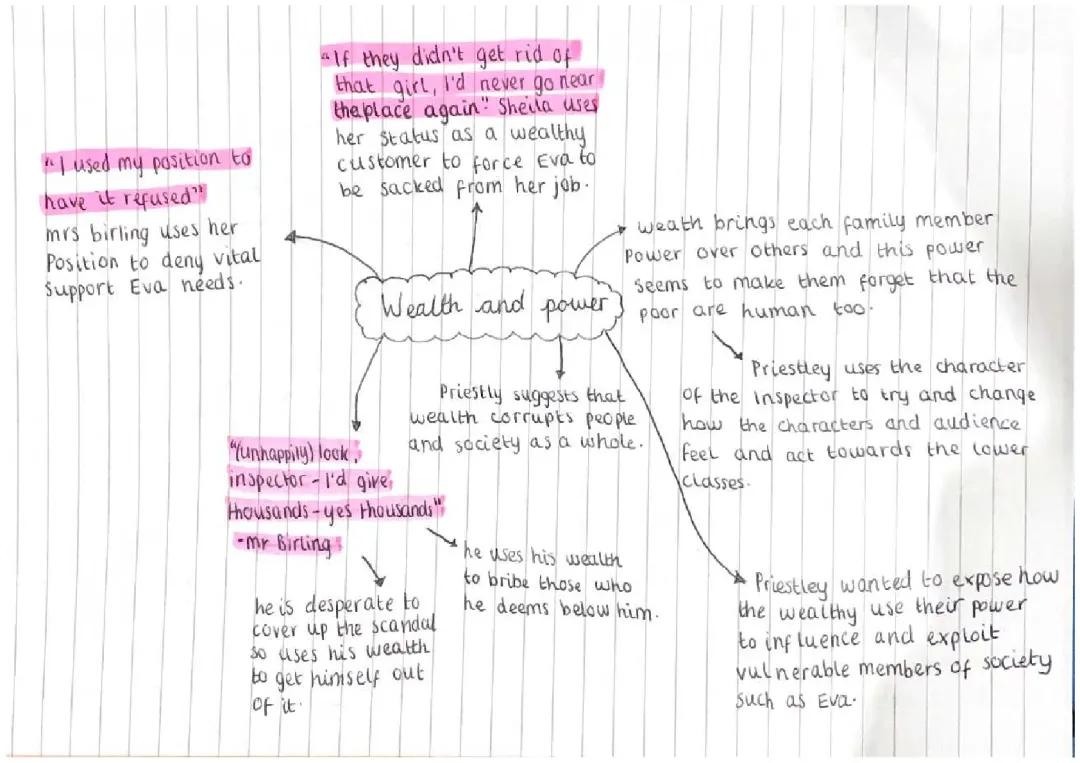 "If they didn't get rid of
that girl, I'd never go near
the place again". Sheila uses
her status as a wealthy
customer to force Eva to
be sacked from her job.
"I used my position to
have it refused"
mrs birling uses her
Position to deny vital
Support Eva needs.
Wealth and power
weath brings each family member
Power over others and this power
seems to make them forget that the
poor are human too.
Priestley uses the character
of the Inspector to try and change
how the characters and audience
feel and act towards the lower
classes.
Priestly suggests that
wealth corrupts people
and society as a whole.
"(unhappily) look,
inspector - I'd give
thousands - yes thousands"
-mr Birling
he uses his wealth
to bribe those who
he deems below him.
he is desperate to
cover up the scandal
so uses his wealth
to get himself out
of it.
Priestley wanted to expose how
the wealthy use their power
to influence and exploit
vulnerable members of society
such as Eva.